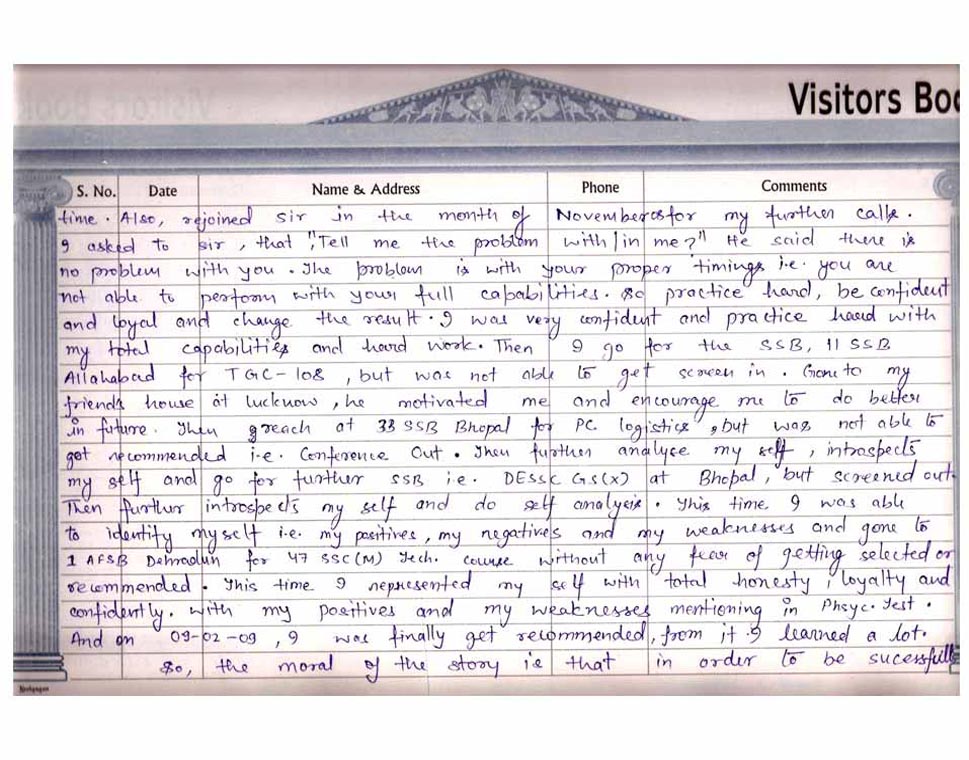 Visitors Boo
S. No. Date Name & Address Phone Comments
time. Also, rejoined sir in the month of November 08 for my further calls.
I asked to sir, that "Tell me the problem with/in me?" He said there is
no problem with you. The problem is with your proper timings i.e. you are
not able to perform with your full capabilities. So practice hard, be confident
and loyal and change the result. I was very confident and practice hard with
my total capabilities and hard work. Then I go for the SSB, 11 SSB
Allahabad for TGC-108, but was not able to get screen in. Gone to my
friends house at lucknow, he motivated me and encourage me to do better
in future. Then I reach at 33 SSB Bhopal for PC logistics, but was not able to
get recommended i.e. Conference Out. Then further analyse my self, introspects
my self and go for further SSB i.e. DESSC GS(X) at Bhopal, but screened out.
Then further introspects my self and do self analysis. This time I was able
to identify myself i.e. my positives, my negatives and my weaknesses and gone to
1 AFSB Dehradun for 47 SSC(M) Tech. course without any fear of getting selected or
recommended. This time I represented my self with total honesty, loyalty and
confidently. with my positives and my weaknesses mentioning in Phsyc. Test.
And on 09-02-09, I was finally get recommended, from it I learned a lot.
So, the moral of the story is that in order to be sucessfull